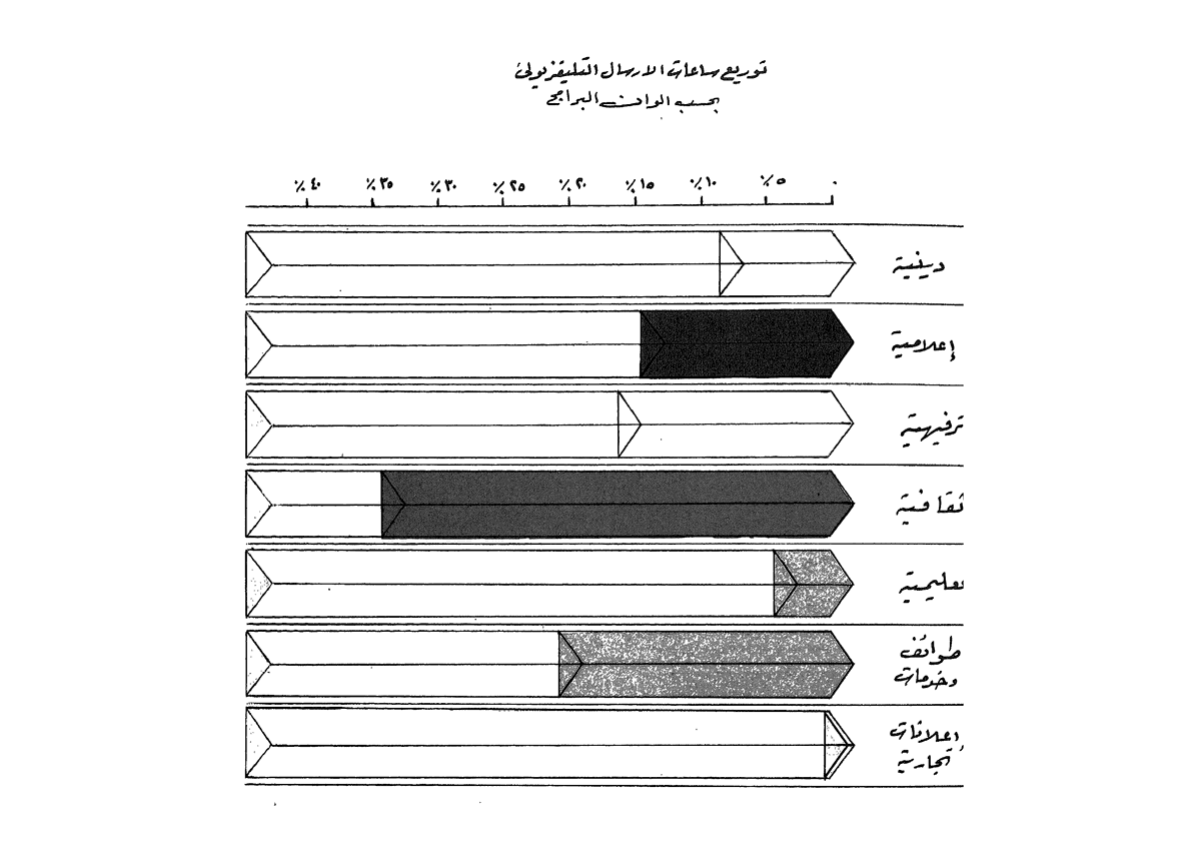 توزيع ساعات الارسال التليفزيونى
بحسب الوان البرامج
٠ ٥٪ ١٠٪ ١٥٪ ٢٠٪ ٢٥٪ ٣٠٪ ٣٥٪ ٤٠٪
دينية
إعلامية
ترفيهية
ثقافية
تعليمية
طوائف
وخدمات
إعلانات
تجارية